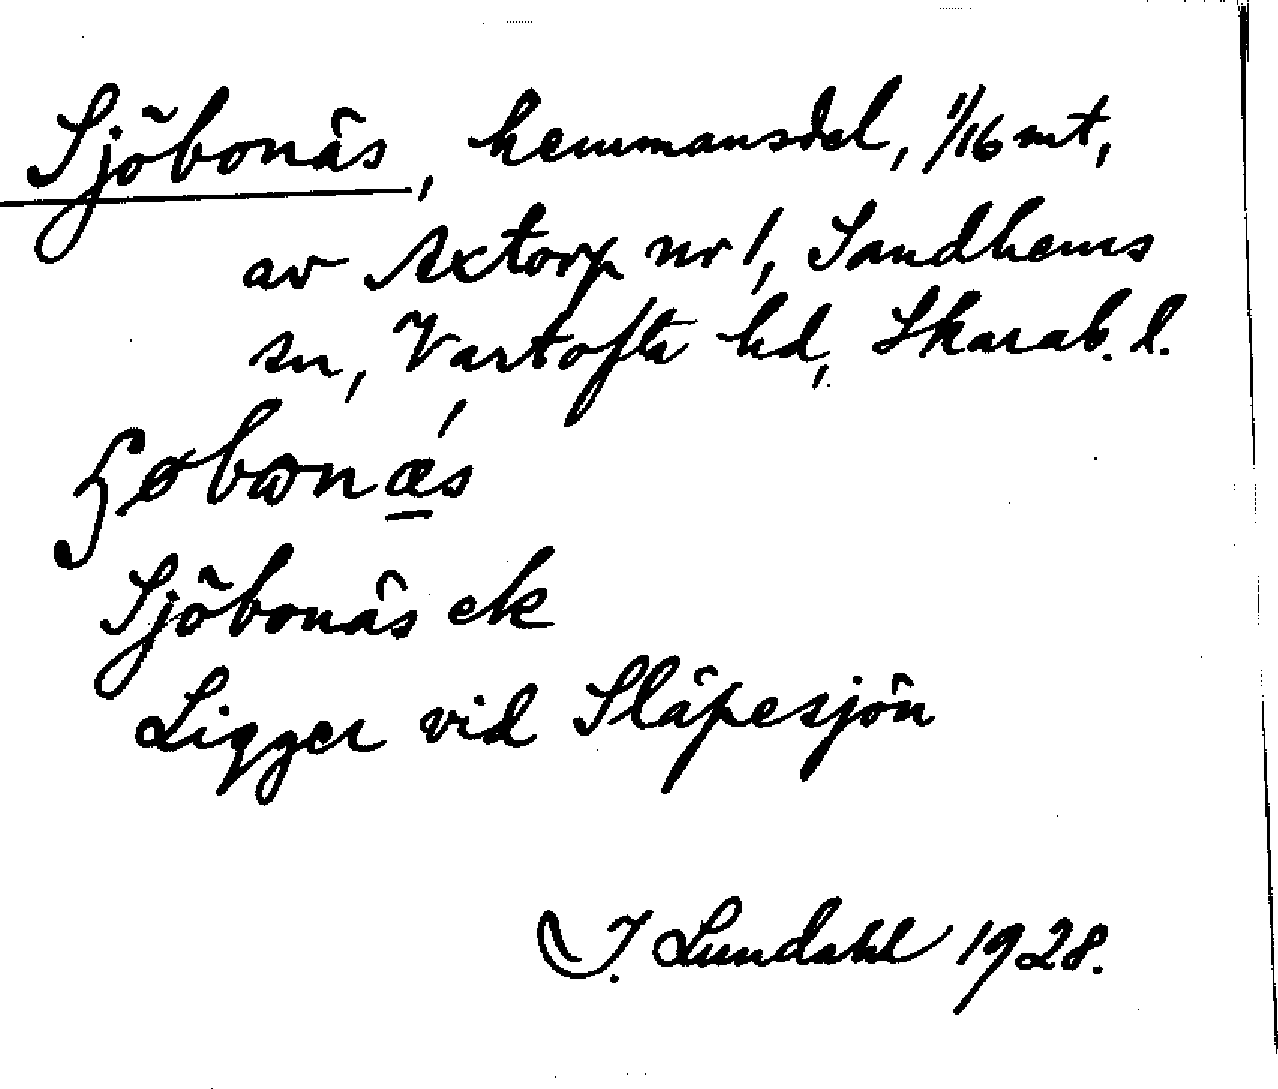 Sjöbonäs, hemmansdel, 1/16 mt,
av Axtorp nr 1, Sandhems
sn, Vartofta hd, Skarab. l.
Sjöbonäs ek
Ligger vid Släpesjön
I. Lundahl 1928.